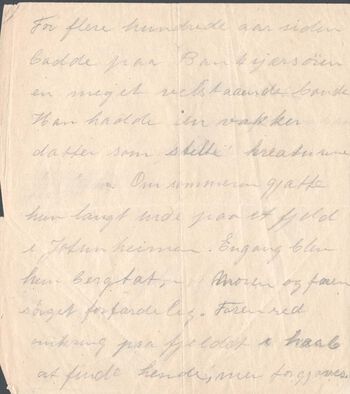 For flere hundrede aar siden
bodde paa
en meget velstaaende bonde
Han hadde en vakker
datter som stelte kreaturene
Om sommeren gjætte
hun langt inde paa et fjeld
i Jotunheimen. Engang blev
hun bergtat, Moren og faren
sørget forfærdelig. Faren red
omkring paa fjeldet i haab
at finde hende, men forgjæves